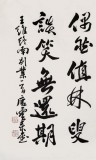 偶然值林叟
談笑無還期
王維終南別業一首